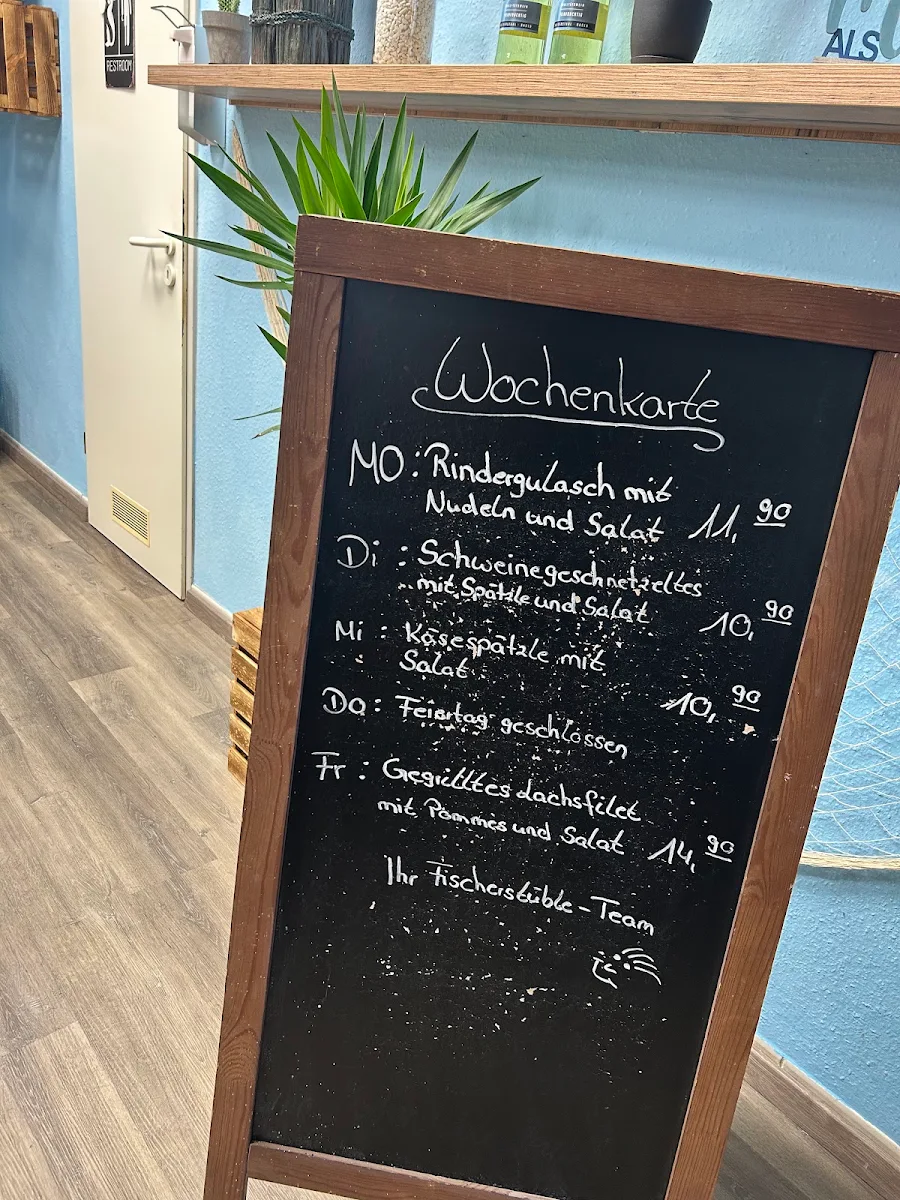 RESTROOM
ALS
Wochenkarte
MO: Rindergulasch mit
Nudeln und Salat 11,90
Di: Schweinegeschnetzeltes
mit Spätzle und Salat 10,90
Mi: Käsespätzle mit
Salat 10,90
Do: Feiertag geschlossen
Fr: Gegrilltes dachsfilet
mit Pommes und Salat 14,90
Ihr Fischerstüble-Team